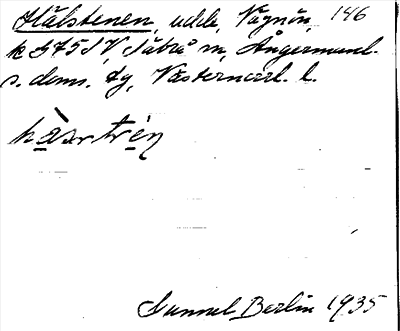 Hälstenen, udde, Vägnön, 146
k 375 SV, Säbrå sn, Ångermanl.
s. doms. dg, Västernorrl. l.
Gunnel Berlin 1935